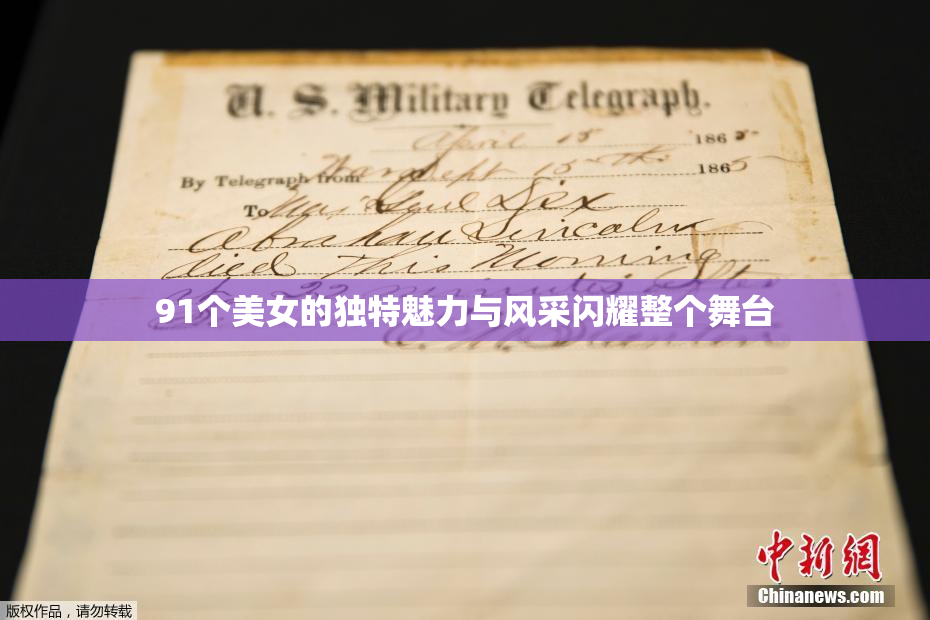 U. S. Military Telegraph.
April 15 1865
By Telegraph from War Dept 15th 1865
To Maj Genl Dix
Abraham Lincoln
died This Morning
at 22 minutes after
91个美女的独特魅力与风采闪耀整个舞台
E. M. Stanton
中新网
Chinanews.com
版权作品，请勿转载